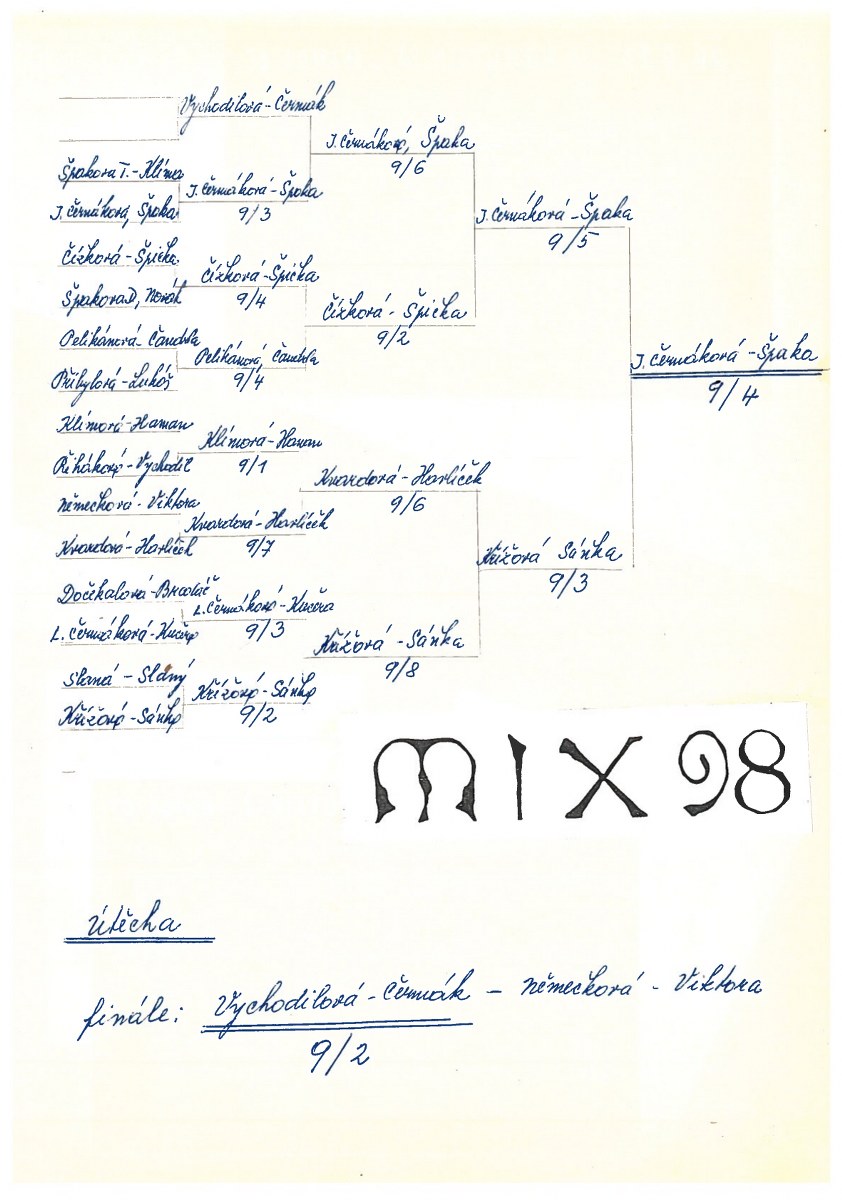 Vychodilová - Čermák
Špakova I. - Klíma
J. Čermáková, Špaka
Čížková - Špička
Špakova D, Novák
Pelikánová - Čandrla
Přibylová - Lukáš
Klímová - Haman
Řiháková - Vychodil
Němečková - Viktora
Kvardová - Harlíček
Dočekalová -
L. Čermáková - Kučera
Slaná - Slaný
Křížová - Sáňka
J. Čermáková - Špaka
9/3
Čížková - Špička
9/4
Pelikánová, Čandrla
9/4
Klímová - Haman
9/1
Kvardová - Harlíček
9/7
L. Čermáková - Kučera
9/3
Křížová - Sáňka
9/2
J. Čermáková, Špaka
9/6
Čížková - Špička
9/2
Kvardová - Harlíček
9/6
Křížová - Sáňka
9/8
J. Čermáková - Špaka
9/5
Křížová Sáňka
9/3
J. Čermáková - Špaka
9/4
MIX 98
Útěcha
finále: Vychodilová - Čermák - Němečková - Viktora
9/2